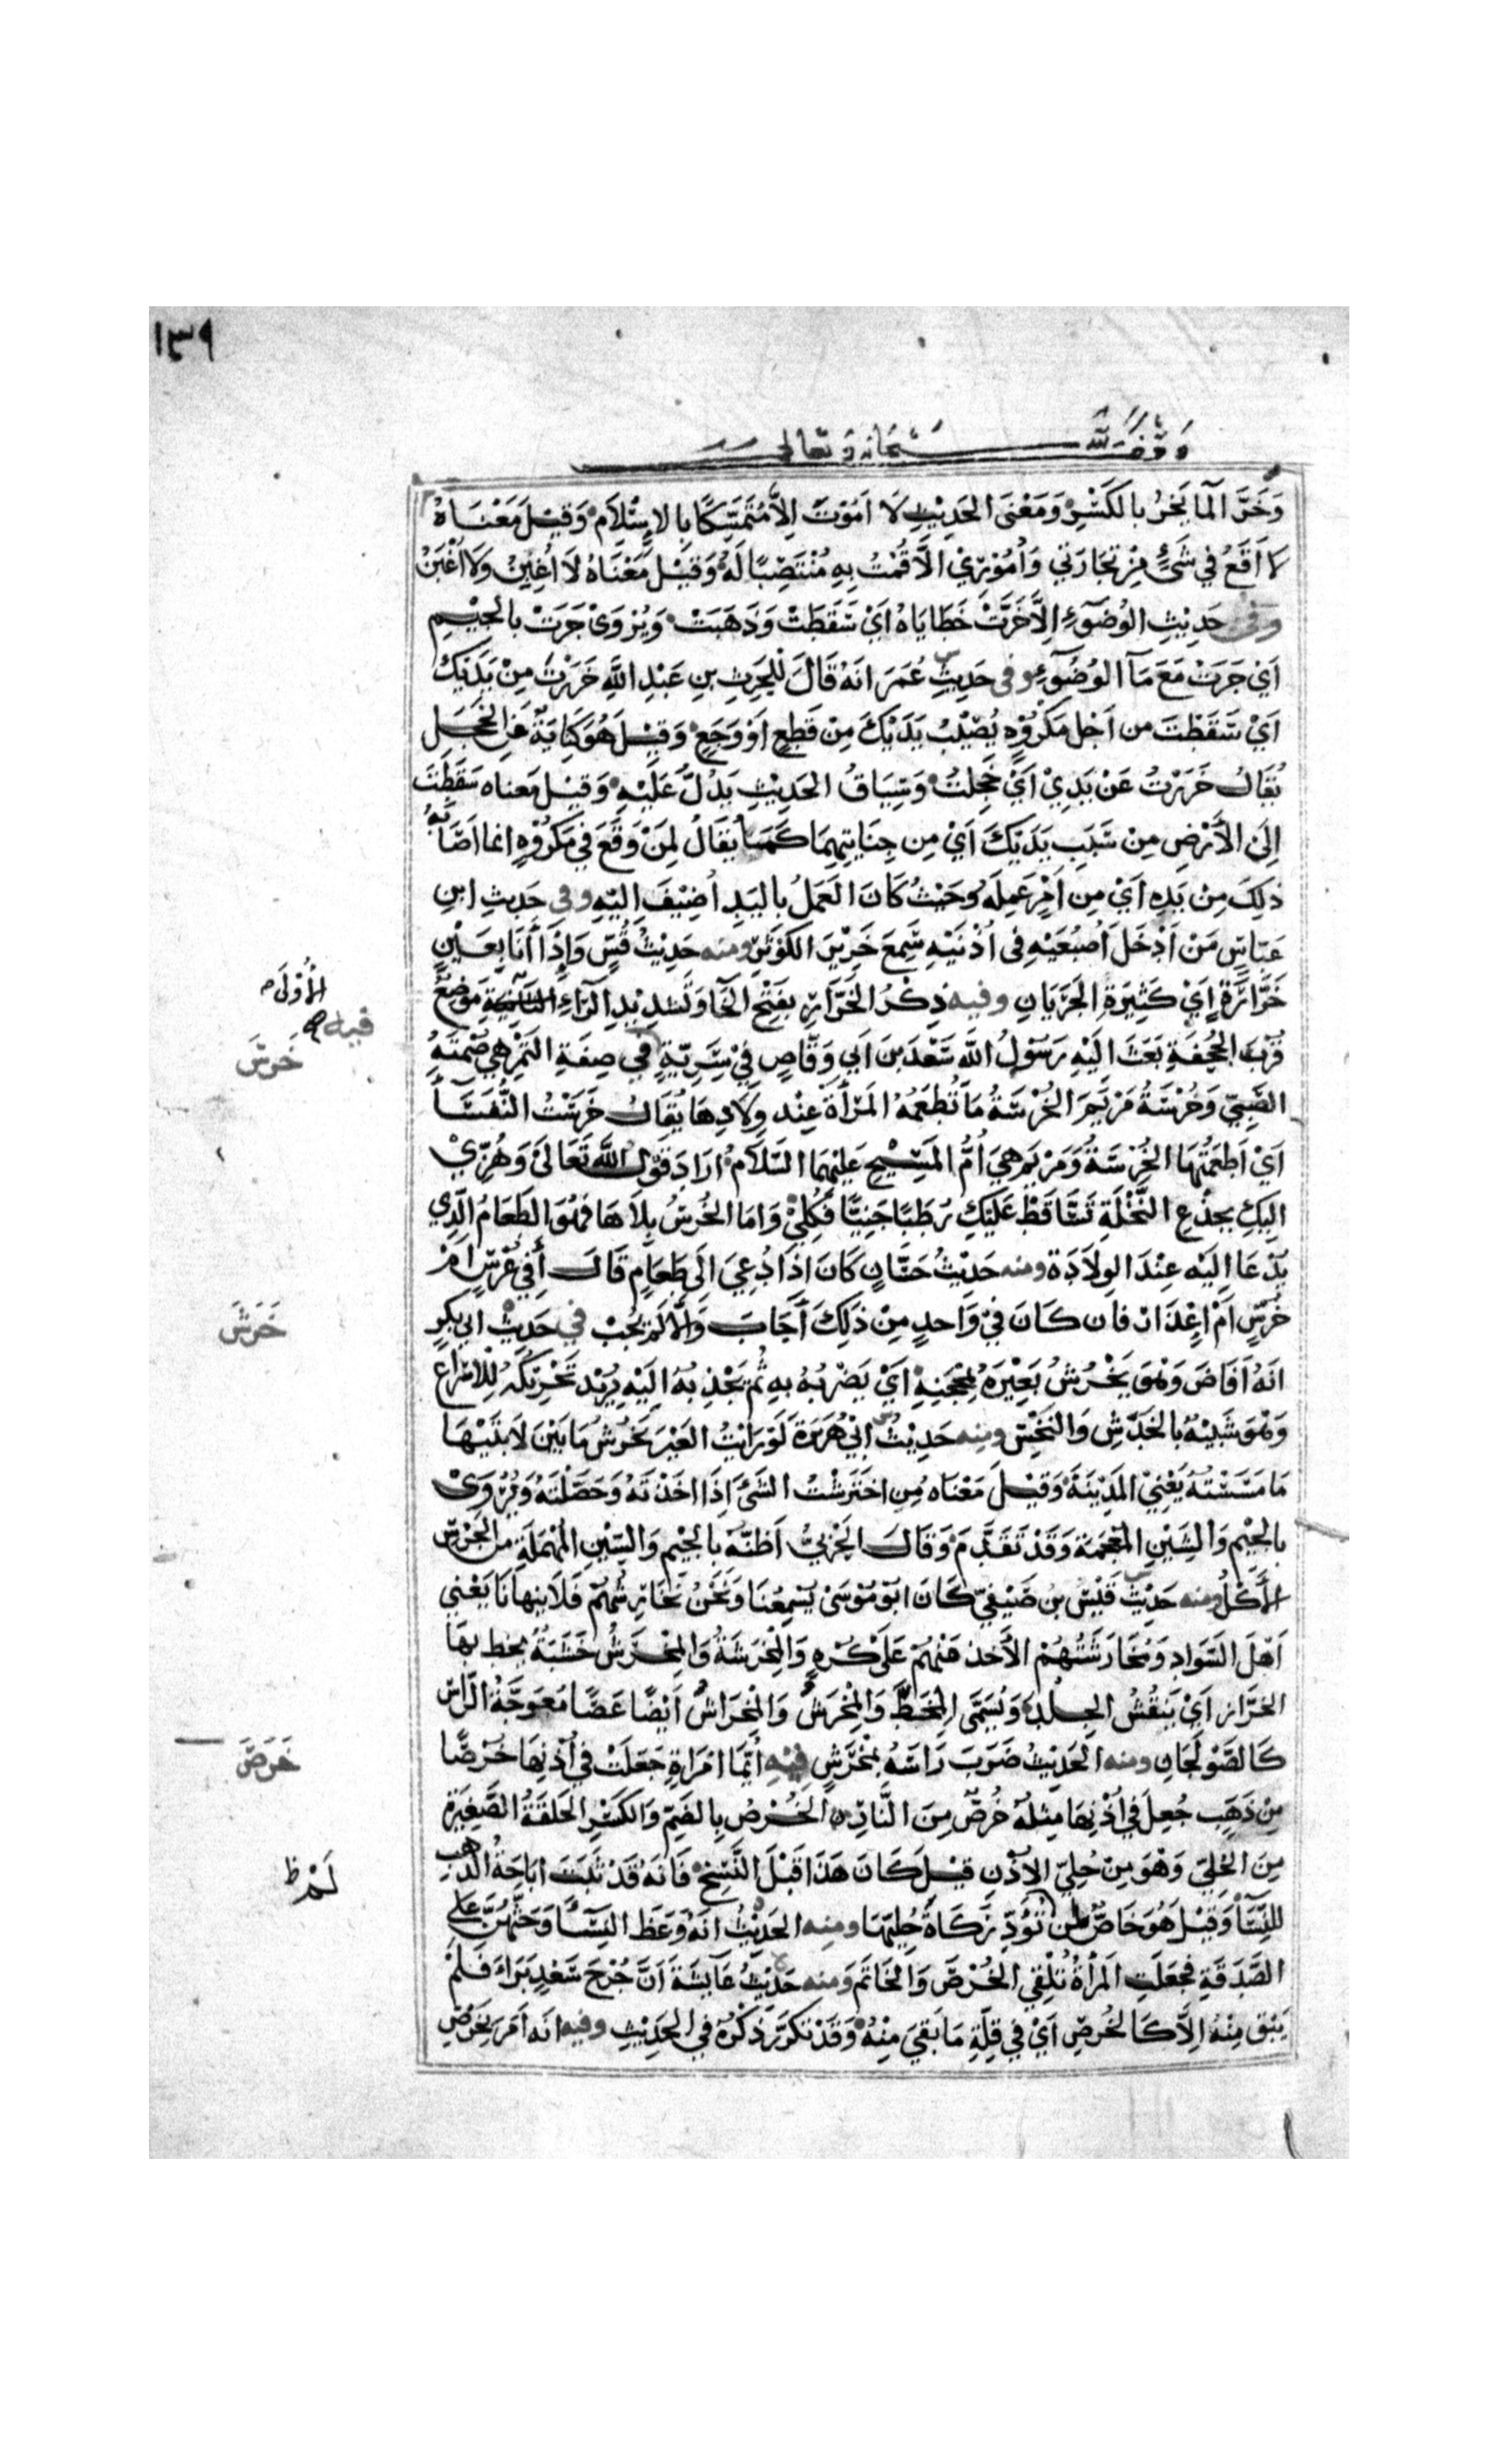 ١٣٩
وقف لله سبحانه وتعالى
وَخَرَّ الْمَا يَخِرُّ بِالكَسْرِ وَمَعْنَى الحَدِيْثِ لَا اَمُوْتَ اِلَّا مُتَمَسِّكًا بِالاِسْلَامِ وَقِيْلَ مَعْنَاهُ
لا اَقَعُ فِي شَيْءٍ مِنْ تِجَارَتِي وَاُمُوْرِيْ اِلَّا قُمْتُ بِهِ مُنْتَصِبًا لَهُ وَقِيْلَ مَعْنَاهُ لَا اُغْبِنُ وَلَا اُغْبَنُ
وفى حَدِيْثِ الوُضُوْءِ اِلَّا خَرَّتْ خَطَايَاهُ اَيْ سَقَطَتْ وَذَهَبَتْ وَيُرْوَى جَرَتْ بِالجِيْمِ
اَيْ جَرَتْ مَعَ مَاءِ الوُضُوْءِ وفى حَدِيْثِ عُمَرَ انَهُ قَالَ لِلْحَرِثِ بنِ عَبْدِ اللَّهِ خَرَرْتَ مِنْ يَدَيْكَ
اَيْ سَقَطْتَ من اَجْلِ مَكْرُوْهٍ يُصِيْبُ يَدَيْكَ مِنْ قَطْعٍ اَوْ وَجَعٍ وَقِيْلَ هُوَ كِنَايَةٌ عَنِ الخَجَلِ
يُقَالُ خَرَرْتُ عَنْ يَدِيْ اَيْ خَجِلْتُ وَسِيَاقُ الحَدِيْثِ يَدُلُّ عَلَيْهِ وَقِيْلَ مَعناه سَقَطْتَ
اِلَى الأَرْضِ مِنْ سَبَبِ يَدَيْكَ اَيْ مِن جِنَايَتِهِمَا كَمَا يُقَالُ لِمَنْ وَقَعَ فِي مَكْرُوْهٍ انما اَصَابَهُ
ذلِكَ مِنْ يَدِهِ اَيْ مِن اَمْرٍ عَمِلَهُ وَحَيْثُ كَانَ العَمَلُ بِاليَدِ اُضِيْفَ اِليْهِ وفى حَدِيثِ ابنِ
عَبَّاسٍ مَنْ اَدْخَلَ اُصْبُعَيْهِ فِى اُذُنَيْهِ سَمِعَ خَرِيْرَ الكَوْثَرِ ومنه حَدِيْثُ قُسٍّ وَاِذَا اَنَا بِعَيْنٍ
خَرَّارَةٍ اَيْ كَثِيْرَةِ الجَرَيَانِ وفيه ذِكْرُ الخَرَّارِ بِفَتْحِ الخَا وَتَشْدِيْدِ الرَّاءِ مَوْضِعٌ
قُرْبَ الجُحْفَةِ بَعَثَ اِلَيْهِ رَسُوْلُ اللَّه سَعْدَ بنَ اَبي وَقَّاصٍ فِيْ سَرِيَّةٍ في صِفَةِ التَّمْرِ هِيَ صُمْتَةُ
الصَّبِيّ وَخُرْسَةُ مَرْيَمَ الخُرْسَةُ مَا تُطْعَمُهُ المَرْأَةُ عِنْد وِلَادِهَا يُقَالُ خَرَسْتُ النُّفَسَاءَ
اَيْ اَطْعَمْتُهَا الخُرْسَةُ وَمَرْيَم هِيَ اُمُّ المَسِيْحِ عَلَيْهِمَا السَّلَامُ ارَادَ قَوْلَ اللَّه تَعَالَى وَهُزِّيْ
اِلَيْكِ بِجِذْعِ النَّخْلَةِ تَسَّاقَطْ عَلَيْكِ رُطَبًا جَنِيًّا فَكُلِيْ وَامَا الخُرْسُ بِلَا هَا فَهُوَ الطَعَامُ الَّذِي
يُدْعَا اِلَيْهِ عِنْدَ الوِلَادَةِ ومنه حَدِيْثُ حَسَّانٍ كَانَ اِذَا دُعِيَ اِلَى طَعَامٍ قَالَ أَفِي عُرْسٍ اَمْ
خُرْسٍ اَمْ اِعْذَارٍ فان كَانَ فِيْ وَاحِدٍ مِنْ ذلِكَ أَجَابَ وَاِلَّا لَمْ يُجِبْ في حَدِيْثِ ابي بكرٍ
انَهُ اَفَاضَ وَهُوَ يَخْرُشُ بَعِيْرَهُ بِمِحْجَنِهِ اَيْ يَضْرِبُهُ بِهِ ثُمَّ يَجْذِبُهُ اِلَيْهِ يُرِيْد تَحْرِيْكَهُ لِلْاِسْرَاعِ
وَهُوَ شَبِيْهٌ بِالخَدْشِ وَالنَّخْسِ ومنه حَدِيْثُ اَبِيْ هُرَيْرَةَ لَوْ رَاَيْتُ العَيْرَ تَخْرُشُ مَا بَيْنَ لَابَتَيْهَا
مَا مَسَسْتُهُ يَعْنِيْ المَدِيْنَةَ وَقِيْلَ مَعْنَاه مِن اخْتَرَشْتُ الشَّيْءَ اِذَا اخَذْتَهُ وَحَصَّلْتَهُ وَيُرْوَى
بِالجِيْمِ وَالشِيْنِ المُعْجَمَةِ وَقَدْ تَقَدَّمَ وَقَالَ الحَرْبِيُّ اَظُنّهُ بِالجِيْمِ وَالسِيْنِ المُهْمَلَةِ من الجَرْسِ
الأَكْلُ ومنه حَدِيْثُ قَيْسِ بْنِ صَيْفِيّ كَانَ ابُوْ مُوْسَى يَسْمَعُنَا وَنَحْنُ نُخَارِشُهُمْ فَلَا يَنهانَا يَعْنِي
اَهْلَ السَّوَادِ وَمُخَارَشَتُهُمْ الاَخذ مِنْهُمْ عَلَى كُرْهٍ وَالْمِخْرَشَةُ وَالمِخْرَشُ خَشَبَةٌ يخط بِهَا
الخَرَّاز اَيْ يَنْقُشُ الجِلْدَ وَيُسَمَّى المِخَطَّ وَالمِخْرَشُ وَالْمِخْرَاشُ اَيْضًا عَصًا مُعَوَجَّةُ الرَّاسِ
كَالصَّوْلَجَانِ ومنه الحَدِيْثُ ضَرَبَ رَاسَهُ بِمِخْرَشٍ فِيْهِ اَيُّمَا امْرَاةٍ جَعَلَتْ فِي اُذُنِهَا خُرْصًا
مِنْ ذَهَبٍ جُعِلَ فِي اُذُنِهَا مِثلهُ خُرْصٌ مِنَ النَّارِ الخُرْصُ بِالضَمِّ وَالكَسْرِ الحَلقَةُ الصَّغِيْرَةِ
مِنَ الحُلِيِّ وَهْوَ مِنْ حُلِيّ الاذُنِ قِيْلَ كَانَ هَذَا قَبْلَ النَّسْخِ فَانَهُ قَدْ ثَبَتَ ابَاحَةُ الذَّهَبِ
لِلنِّسَاءِ وَقِيْلَ هُوَ خَاصٌّ لمن تُؤدِّ زَكَاةَ حُلِيِّهَا ومنه الحَدِيْثُ انَهُ وَعَظَ النِسَاءَ وَحَثَّهُنَّ عَلى
الصَّدَقَةِ فَجَعَلَتِ المَرْأةُ تُلْقِي الخُرْصَ وَالخَاتَم وَمنه حَدِيْثُ عَايشَةَ اَنَّ جُرْحَ سَعْدٍ بَرَاءَ فَلَمْ
يَبْقَ مِنْهُ اِلَّا كَالخُرْصِ اَيْ فِي قِلَّةِ مَا بَقِيَ مِنْهُ وَقَدْ تَكَرَّرَ ذِكْرُهُ فِي الحَدِيْثِ وفيه انَه اَمَرَ بِخَرْصِ
الأُوْلَى
فيه
خَرَسَ
خَرَشَ
خَرَصَ
لَمْ ظ